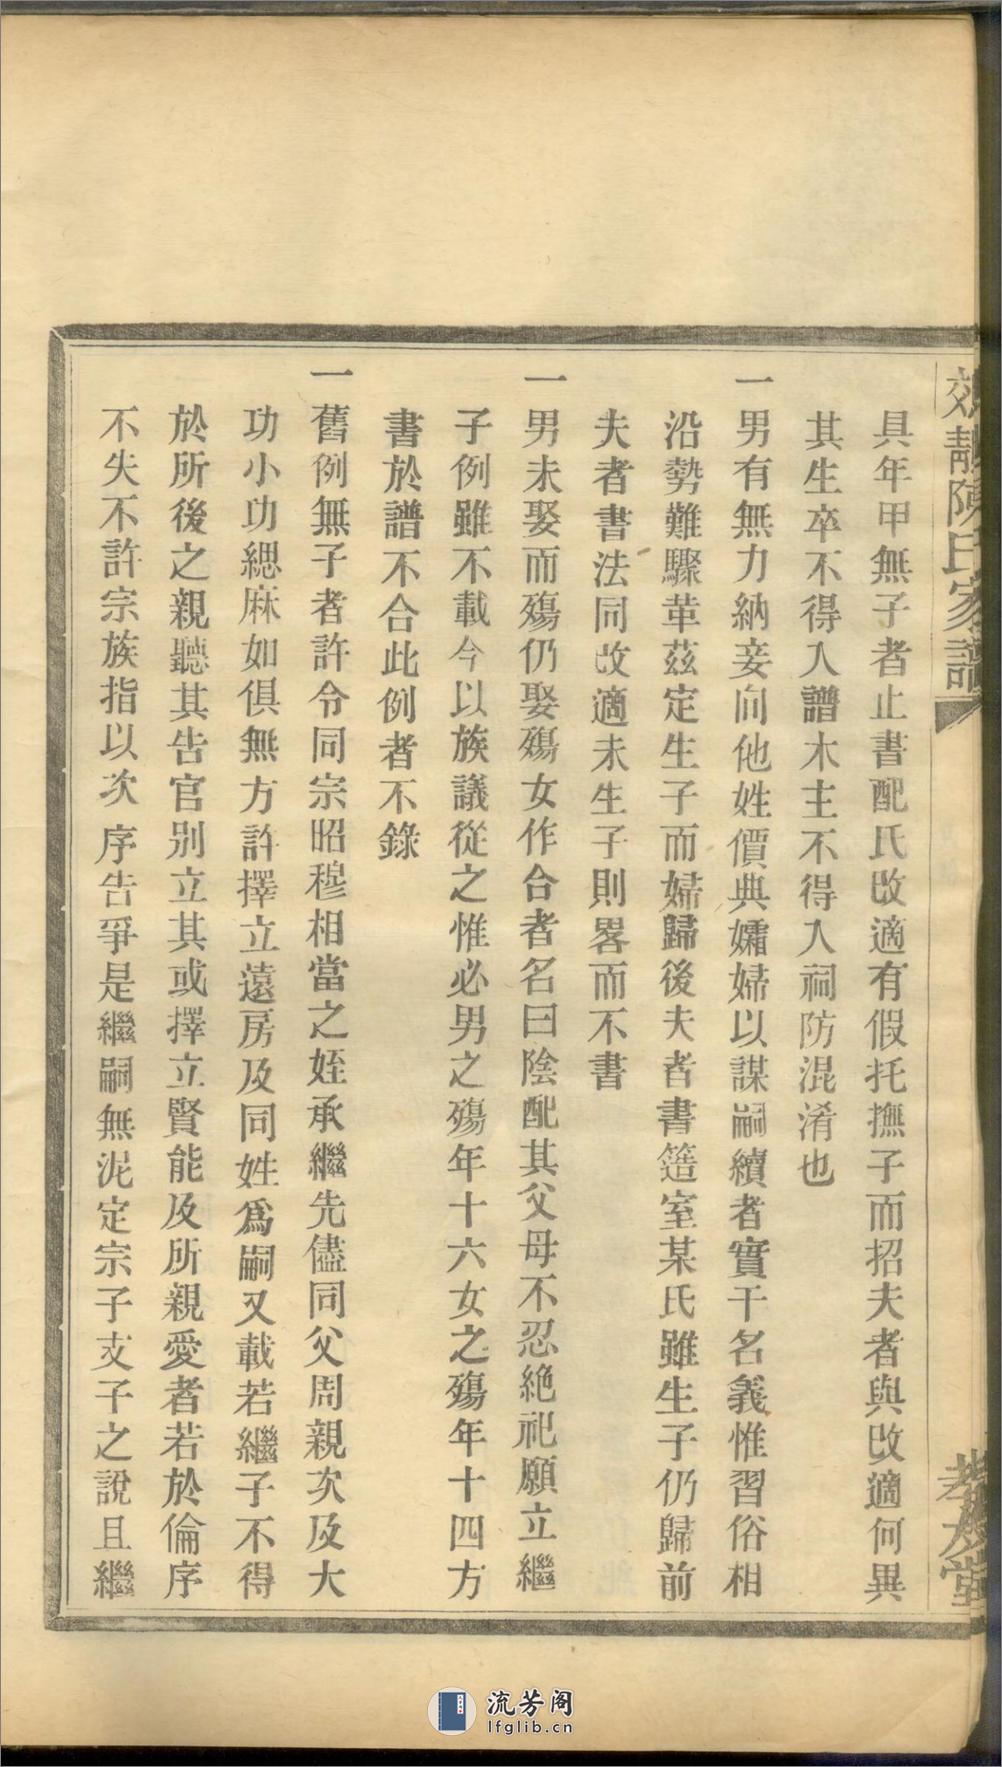 陳氏家譜
孝友堂
具年甲無子者止書配氏改適有假托撫子而招夫者與改適何異
其生卒不得入譜木主不得入祠防混淆也
一男有無力納妾向他姓價典孀婦以謀嗣續者實干名義惟習俗相
沿勢難驟革茲定生子而婦歸後夫者書簉室某氏雖生子仍歸前
夫者書法同改適未生子則畧而不書
一男未娶而殤仍娶殤女作合者名曰陰配其父母不忍絶祀願立繼
子例雖不載今以族議從之惟必男之殤年十六女之殤年十四方
書於譜不合此例者不錄
一舊例無子者許令同宗昭穆相當之姪承繼先儘同父周親次及大
功小功緦麻如俱無方許擇立遠房及同姓爲嗣又載若繼子不得
於所後之親聽其告官別立其或擇立賢能及所親愛者若於倫序
不失不許宗族指以次序告爭是繼嗣無泥定宗子支子之說且繼
流芳阁
lfglib.cn